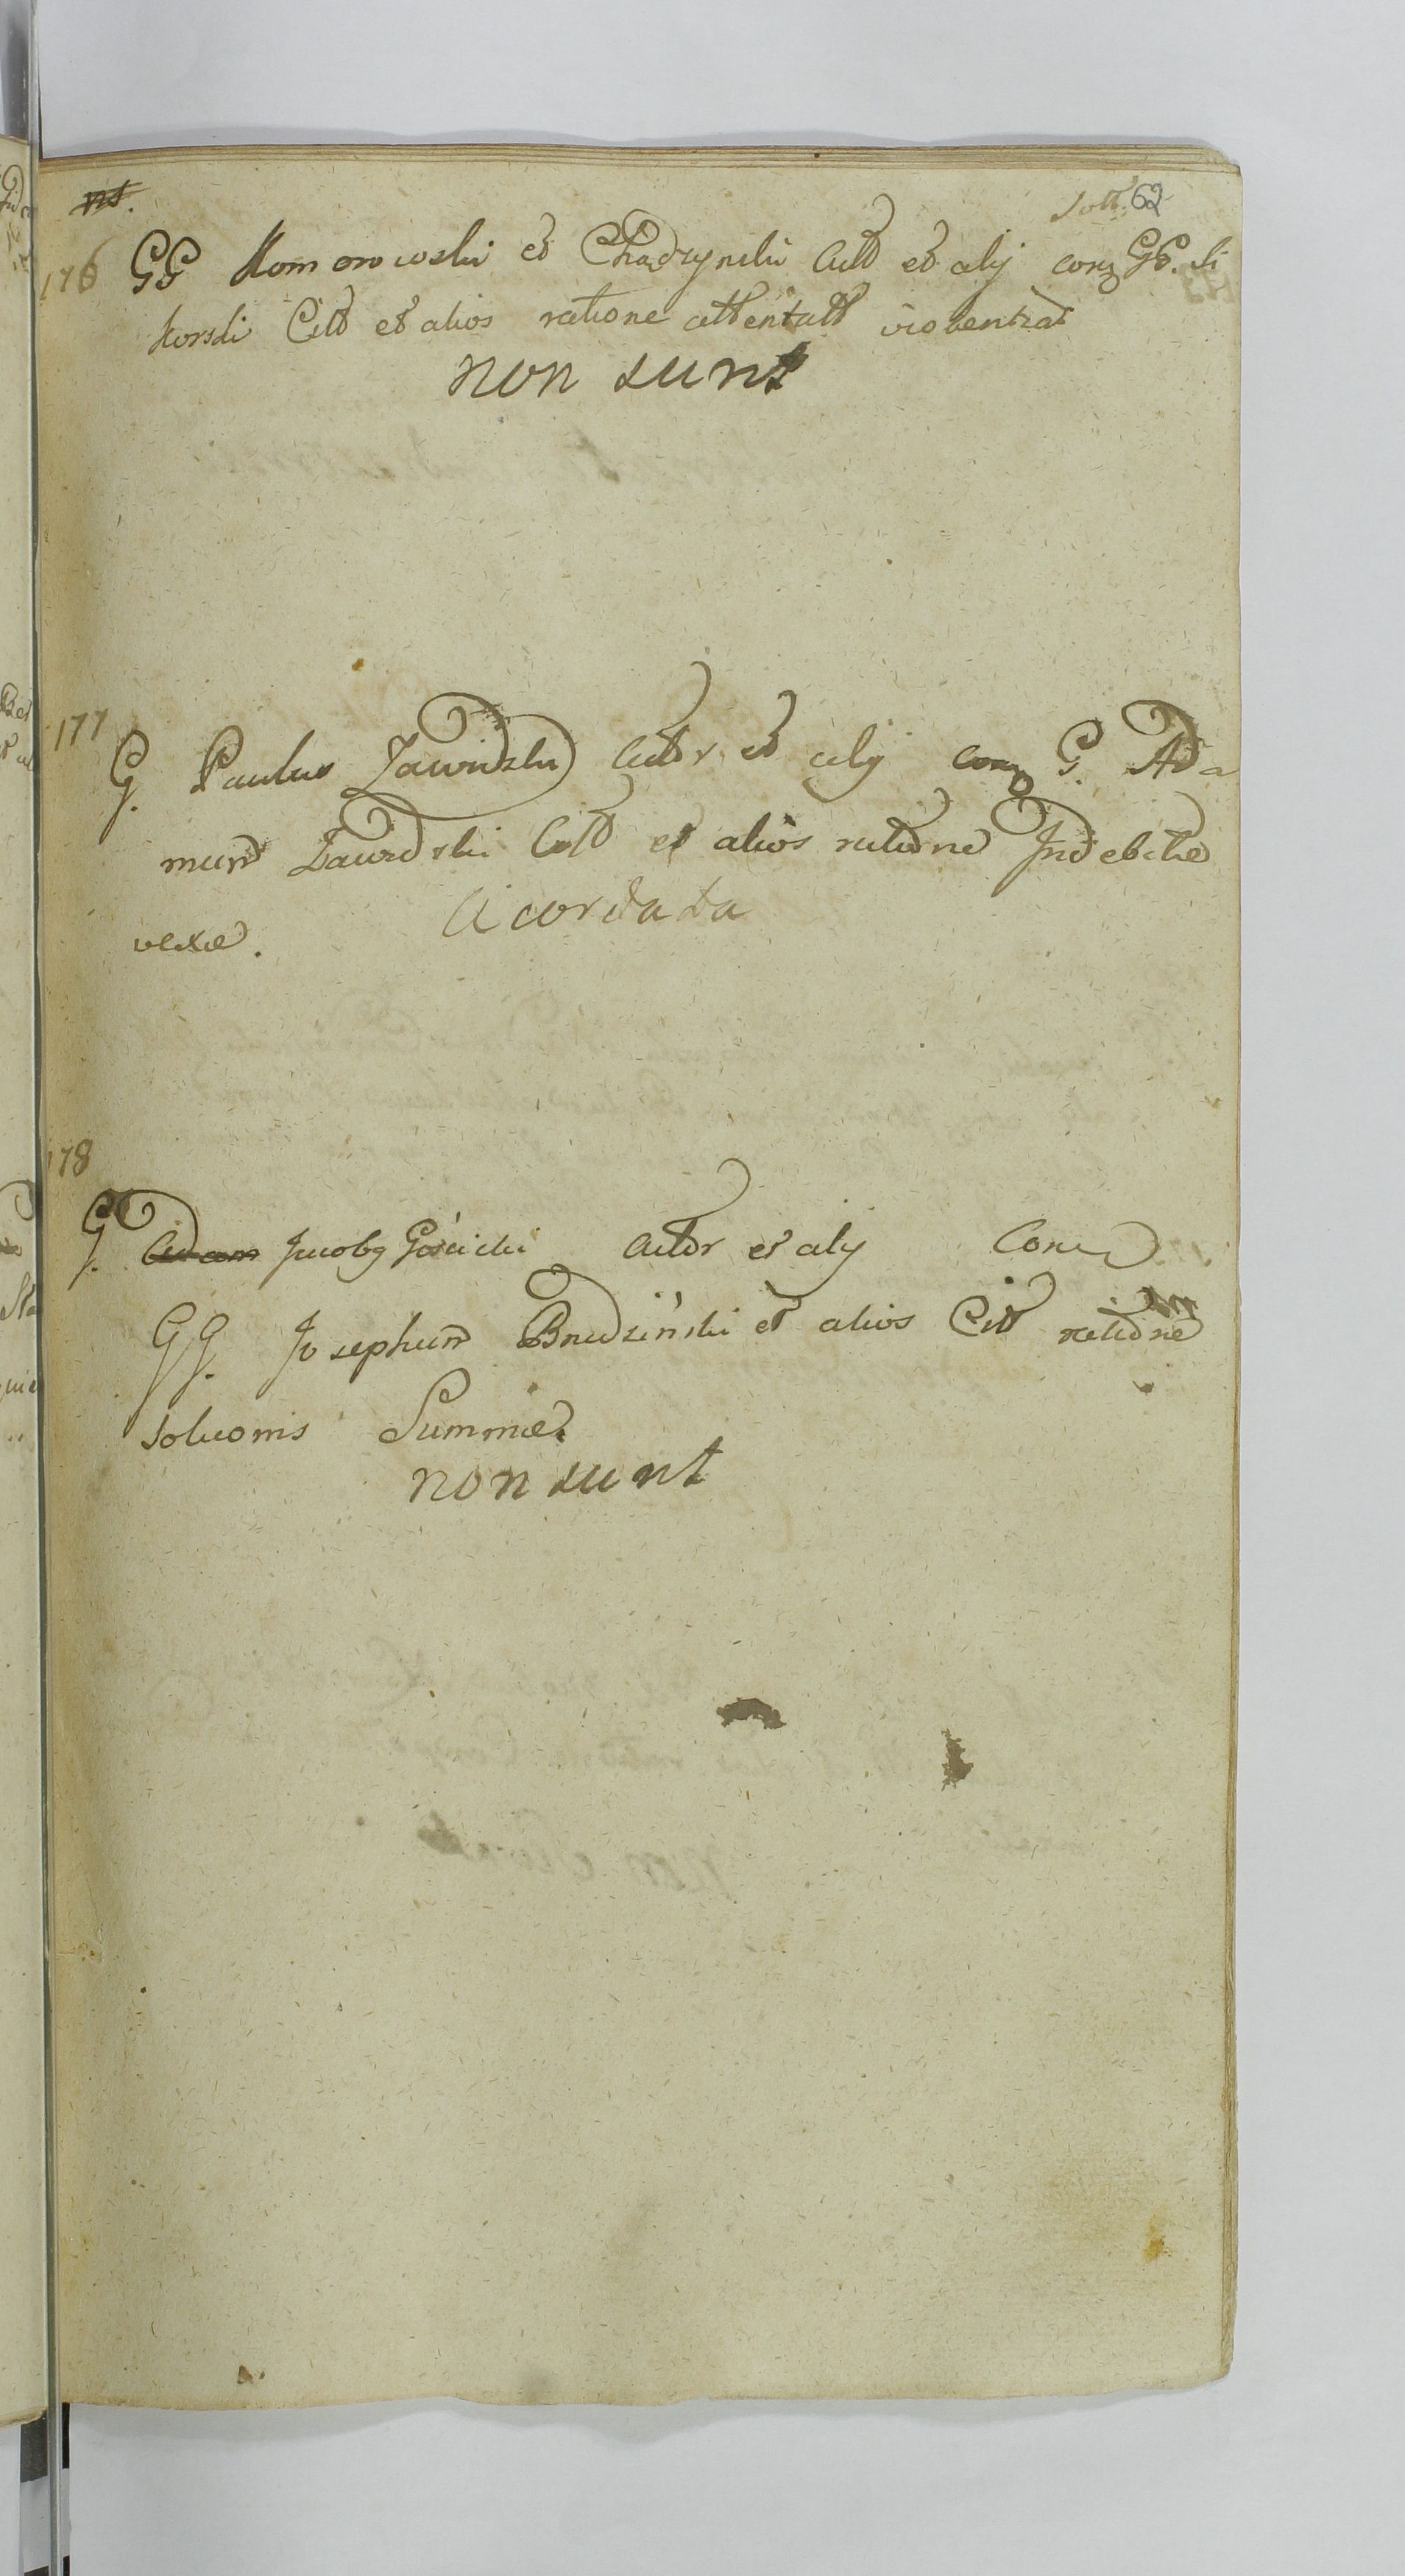 62
176 GG Komorowski et Chądzynski Actt et alij conz GG. Si
korski Citt et alios ratione attentatt violentiar
non sunt
177
G. Paulus Zawidzki Actor et alij conz G. Ada
mum Zawidzki Citt et alios ratione Indebitæ
Acordata
vexæ.
178
G. Adam Jacobg Gościcki Actor et alij Con
GG. Josephum Brudziński et alios Citt ratione
soluonis Summæ
non sunt